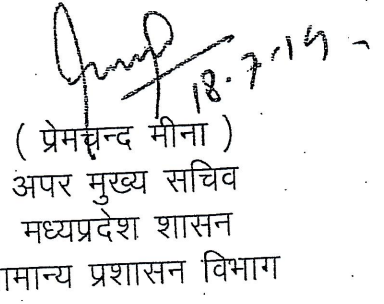 18.7.19
( प्रेमचन्द मीना )
अपर मुख्य सचिव
मध्यप्रदेश शासन
ामान्य प्रशासन विभाग